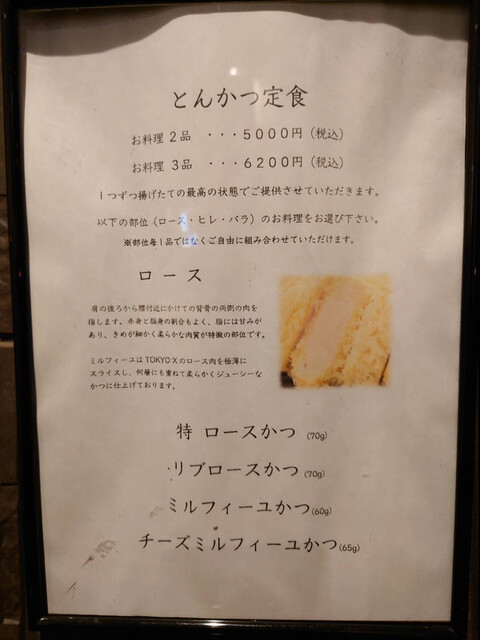 とんかつ定食
お料理2品 ・・・5000円（税込）
お料理 3品 ・・・6200円（税込）
1つずつ揚げたての最高の状態でご提供させていただきます。
以下の部位（ロース・ヒレ・バラ）のお料理をお選び下さい。
※部位毎1品ではなくご自由に組み合わせていただけます。
ロース
肩の後ろから腰付近にかけての背骨の両側の肉を
指します。赤身と脂身の割合もよく、脂には甘みが
あり、きめが細かく柔らかな肉質が特徴の部位です。
ミルフィーユはTOKYO Xのロース肉を極薄に
スライスし、何層にも重ねて柔らかくジューシーな
かつに仕上げております。
特 ロースかつ (70g)
リブロースかつ (70g)
ミルフィーユかつ(60g)
チーズミルフィーユかつ(65g)